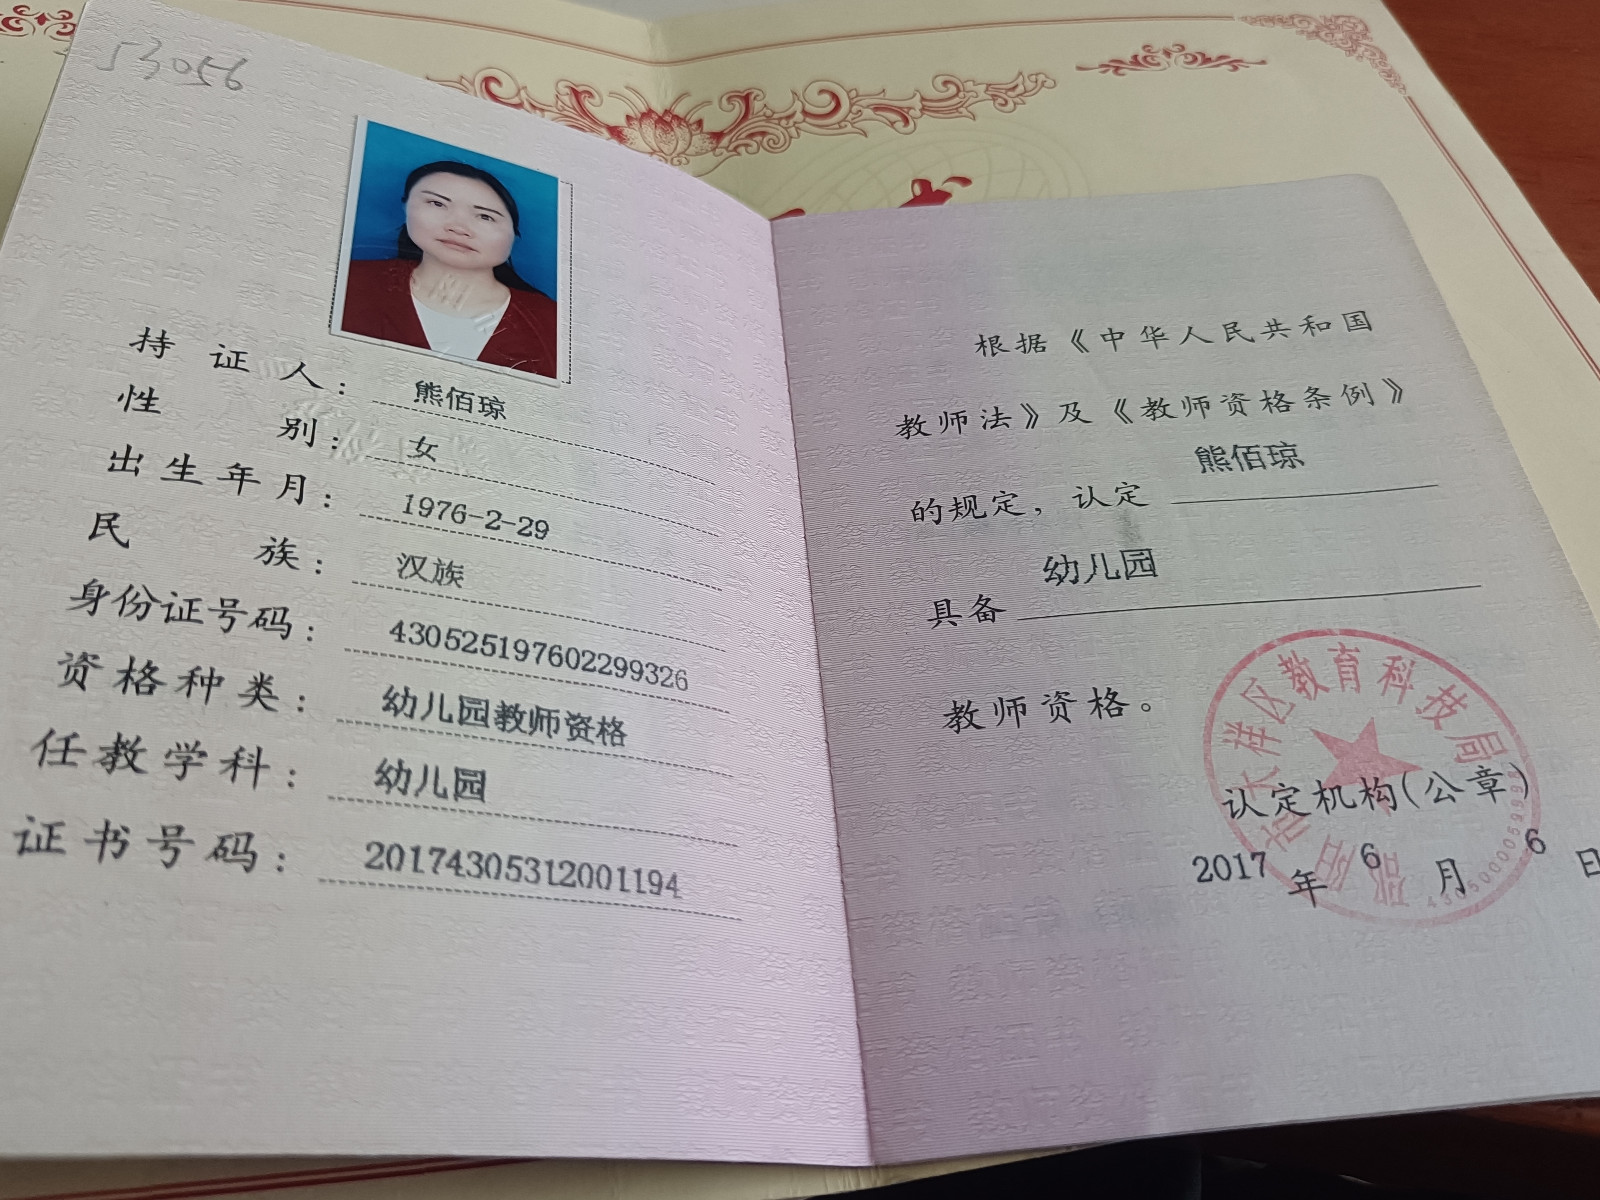 53056
持证人：熊佰琼
性别：女
出生年月：1976-2-29
民族：汉族
身份证号码：430525197602299326
资格种类：幼儿园教师资格
任教学科：幼儿园
证书号码：20174305312001194
根据《中华人民共和国
教师法》及《教师资格条例》
的规定，认定 熊佰琼
具备 幼儿园
教师资格。
邵阳市大祥区教育科技局
认定机构(公章)
2017年6月6日